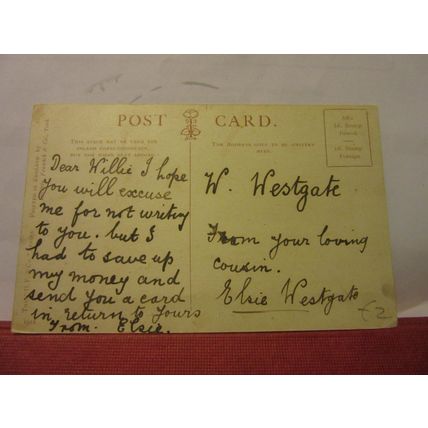 POST CARD.
THIS SPACE MAY BE USED FOR
INLAND
BUT NOT
THE ADDRESS ONLY TO BE WRITTEN
HERE.
Stamp
Inland.
1d. Stamp
Foreign.
Dear Willie I hope
you will excuse
me for not writing
to you. but I
had to save up
my money and
send you a card
in return to yours
From. Elsie.
W. Westgate.
From your loving
cousin.
Elsie Westgate
£2